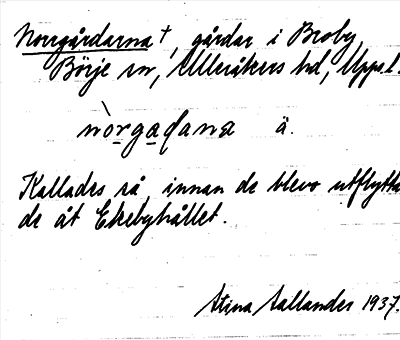 Norrgårdarna †, gårdar i Broby,
Börje sn, Ulleråkers hd, Uppsl.
nòrgaḍana ä.
Kallades så innan de blevo utflytta-
de åt Ekebyhållet.
Stina Sallander 1937.